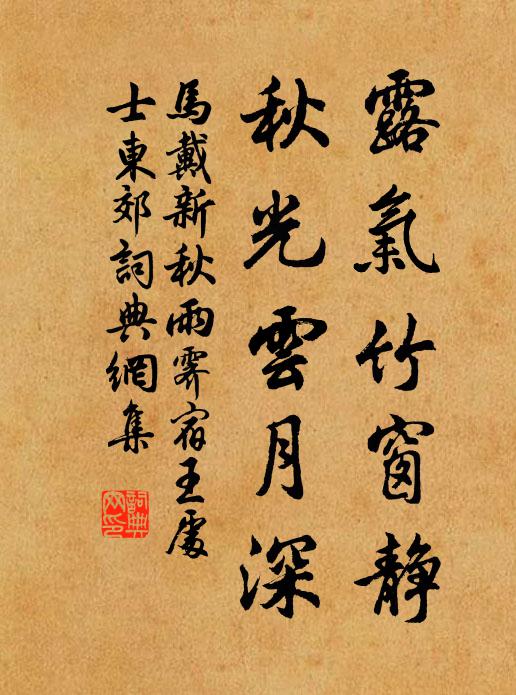 露氣竹窗靜
秋光雲月深
馬戴新秋雨霽宿王處
士東郊詞典網集
詞典
网印